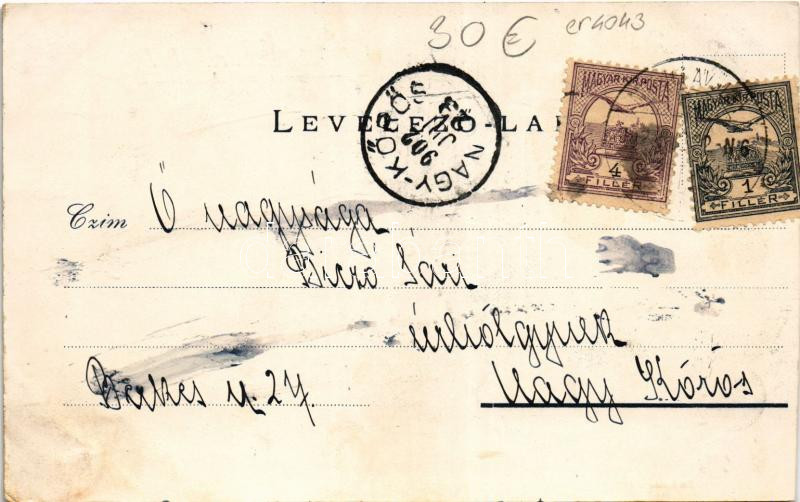 30 € er4043
LEVELEZŐ-LAP
NAGY-KŐRÖS
902
JUL
MAGYAR KIR. POSTA
4
FILLÉR
MAGYAR KIR. POSTA
1
FILLÉR
Czim Ő nagysága
Biczó Sári
úrhölgynek
Nagy Kőrös